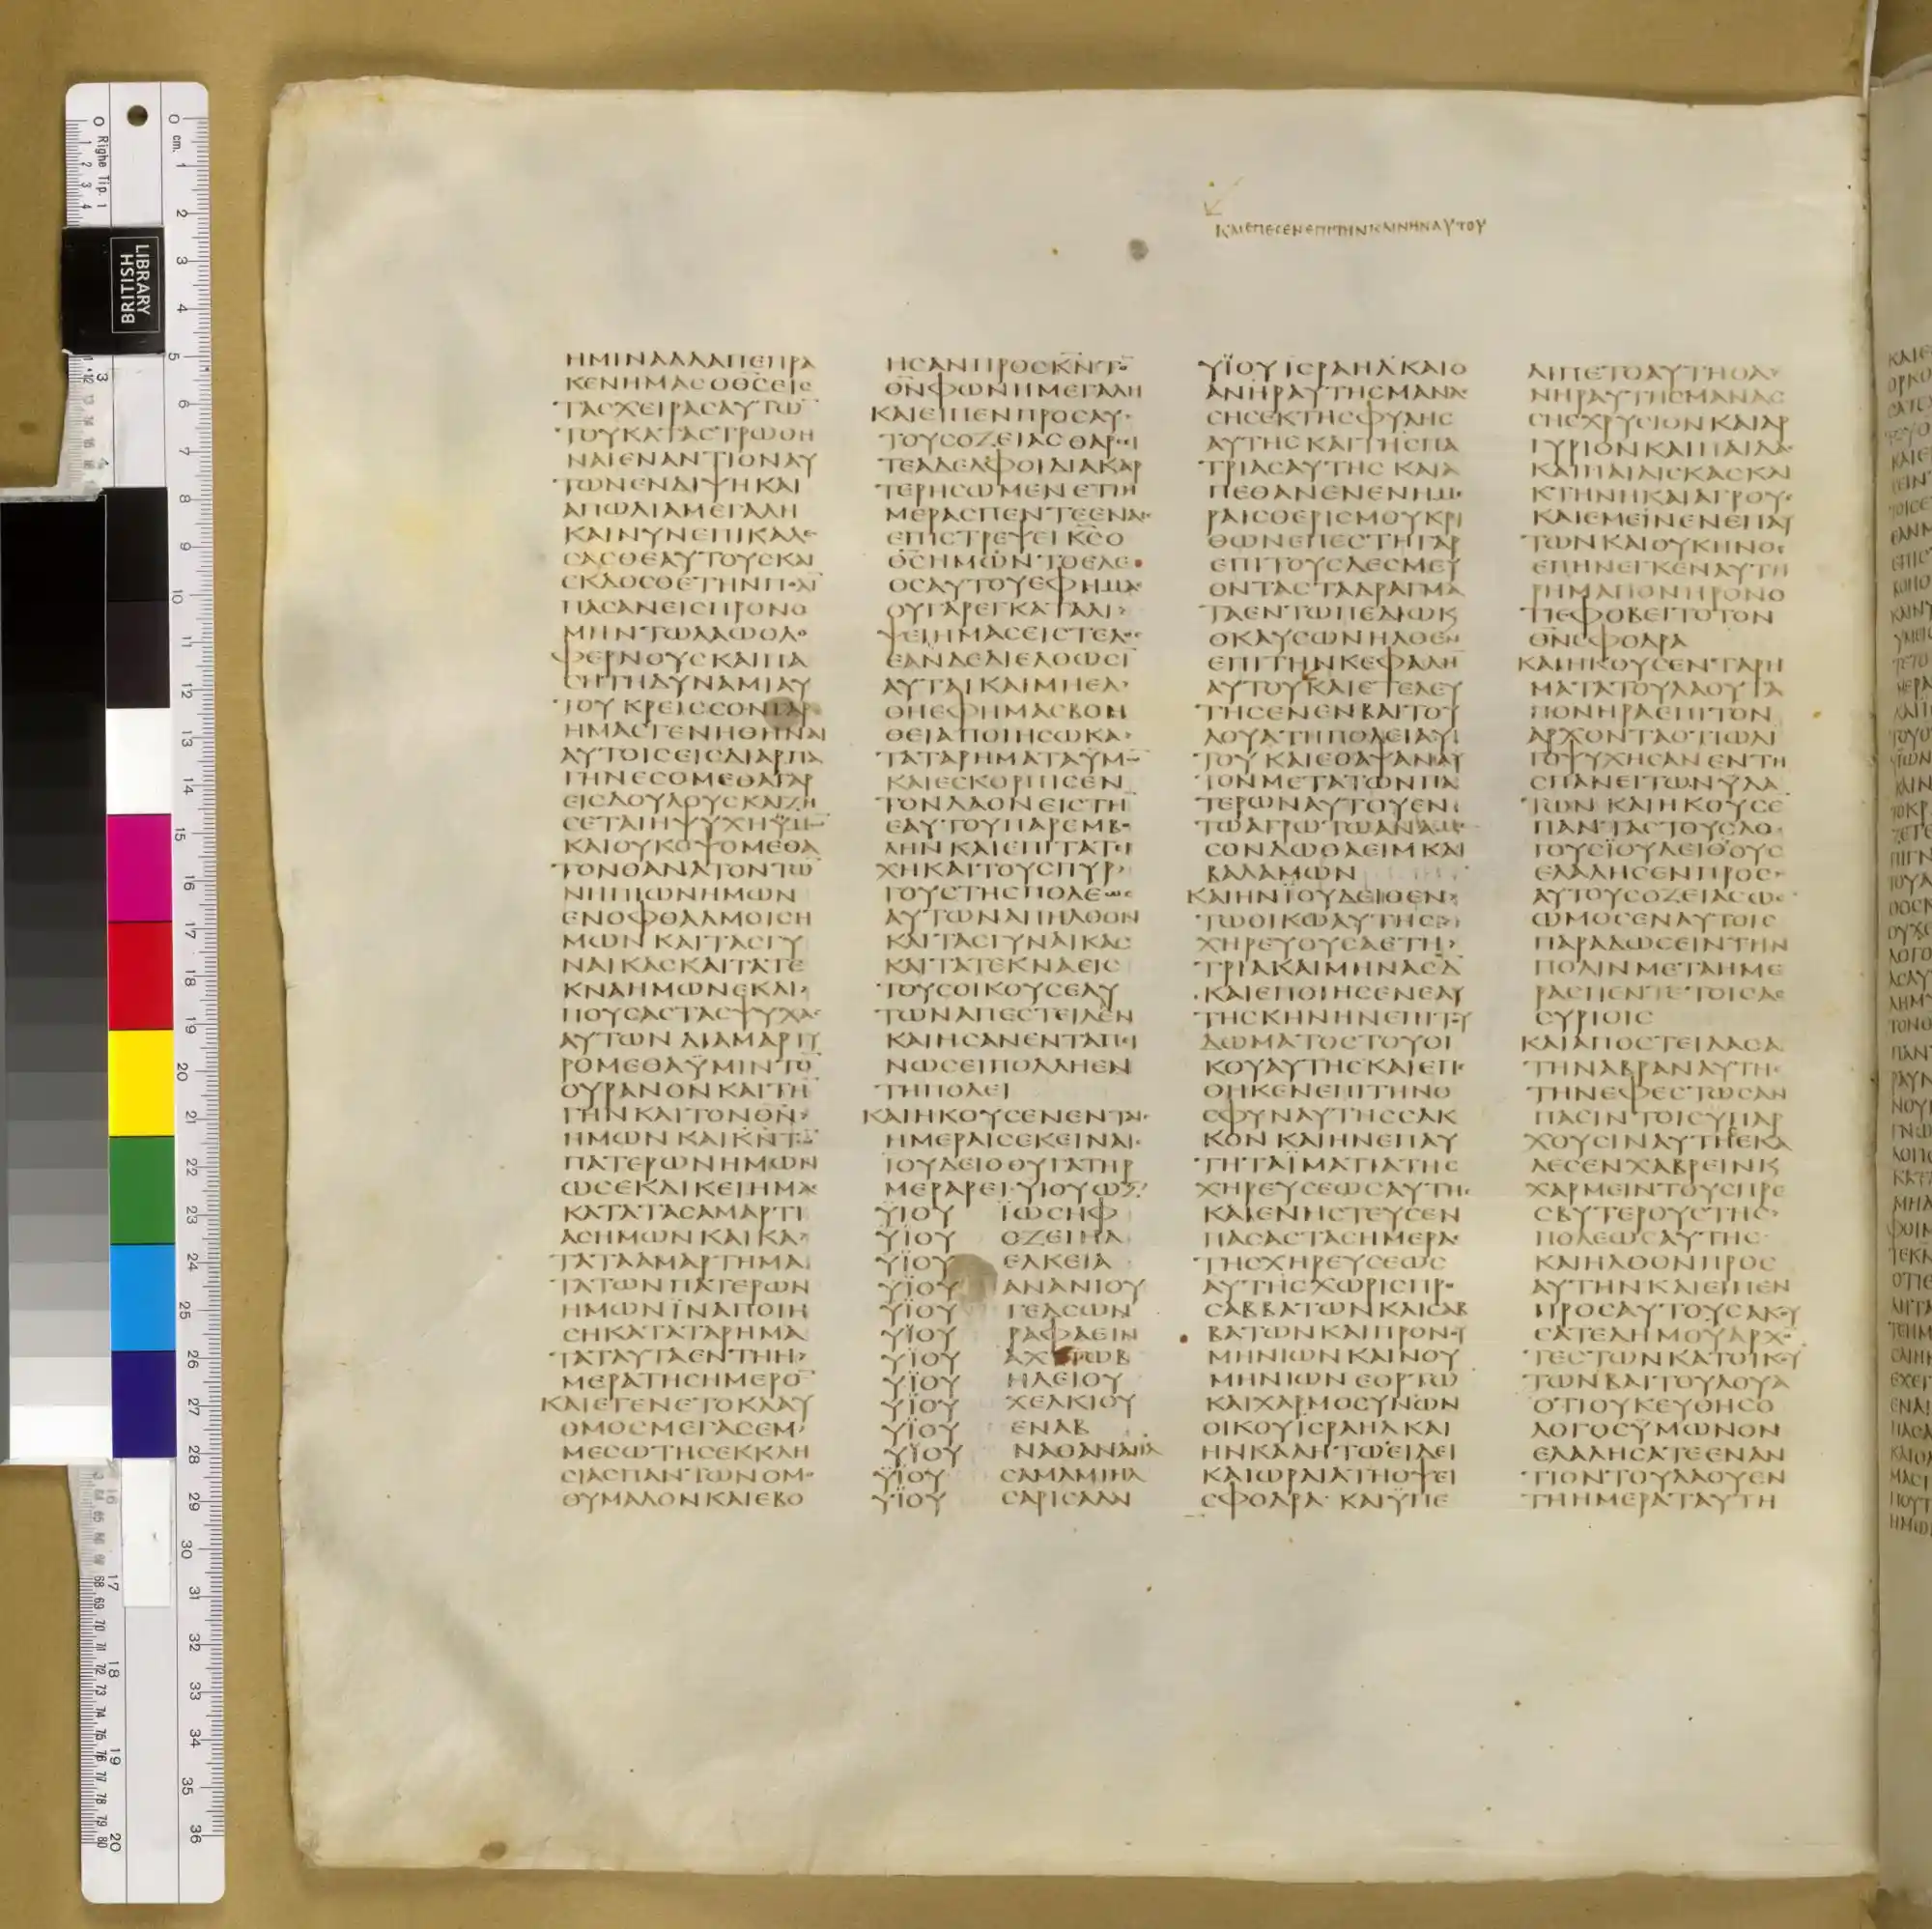 ΚΑΙΕΠΕΣΕΝΕΠΙΤΗΝΚΛΙΝΗΝΑΥΤΟΥ
ΗΜΙΝΑΛΛΑΠΕΠΡΑ
ΚΕΝΗΜΑΣΟΘΣΕΙΣ
ΤΑΣΧΕΙΡΑΣΑΥΤΩ̅
ΤΟΥΚΑΤΑΣΤΡΩΘΗ
ΝΑΙΕΝΑΝΤΙΟΝΑΥ
ΤΩΝΕΝΔΙΨΗΚΑΙ
ΑΠΩΛΙΑΜΕΓΑΛΗ
ΚΑΙΝΥΝΕΠΙΚΑΛΕ
ΣΑΣΘΕΑΥΤΟΥΣΚΑΙ
ΠΑΣΑΝΕΙΣΠΡΟΝΟ
ΜΗΝΤΩΛΑΩΟΛΟ
ΦΕΡΝΟΥΣΚΑΙΠΑ
ΣΗΤΗΔΥΝΑΜΙΑΥ
ΤΟΥΚΡΕΙΣΣΟΝΓΑΡ
ΗΜΑΣΓΕΝΗΘΗΝΑΙ
ΑΥΤΟΙΣΕΙΣΔΙΑΡΠΑ
ΓΗΝΕΣΟΜΕΘΑΓΑΡ
ΕΙΣΔΟΥΛΟΥΣΚΑΙΖΗ
ΣΕΤΑΙΗΨΥΧΗΫΜ̅
ΚΑΙΟΥΚΟΨΟΜΕΘΑ
ΤΟΝΘΑΝΑΤΟΝΤΩ̅
ΝΗΠΙΩΝΗΜΩΝ
ΕΝΟΦΘΑΛΜΟΙΣΗ
ΜΩΝΚΑΙΤΑΣΓΥ
ΝΑΙΚΑΣΚΑΙΤΑΤΕ
ΚΝΑΗΜΩΝΕΚΛΙ>
ΠΟΥΣΑΣΤΑΣΨΥΧΑΣ
ΑΥΤΩΝΔΙΑΜΑΡΤΥ
ΡΟΜΕΘΑΫΜΙΝΤΟ̅
ΟΥΡΑΝΟΝΚΑΙΤΗ̅
ΓΗΝΚΑΙΤΟΝΘΝ>
ΗΜΩΝΚΑΙΚΝΤΩ̅
ΠΑΤΕΡΩΝΗΜΩΝ
ΩΣΕΚΔΙΚΕΙΗΜΑΣ
ΚΑΤΑΤΑΣΑΜΑΡΤΙ
ΑΣΗΜΩΝΚΑΙΚΑ>
ΤΑΤΑΑΜΑΡΤΗΜΑ
ΤΑΤΩΝΠΑΤΕΡΩΝ
ΗΜΩΝΪΝΑΠΟΙΗ
ΣΗΚΑΤΑΤΑΡΗΜΑ
ΤΑΤΑΥΤΑΕΝΤΗΗ>
ΜΕΡΑΤΗΣΗΜΕΡΟ̅
ΚΑΙΕΓΕΝΕΤΟΚΛΑΥ
ΘΜΟΣΜΕΓΑΣΕΜ>
ΜΕΣΩΤΗΣΕΚΚΛΗ
ΣΙΑΣΠΑΝΤΩΝΟΜΟ
ΘΥΜΑΔΟΝΚΑΙΕΒΟ
ΗΣΑΝΠΡΟΣΚΝΤΟ̅
ΘΝΦΩΝΗΜΕΓΑΛΗ
ΚΑΙΕΙΠΕΝΠΡΟΣΑΥ
ΤΟΥΣΟΖΕΙΑΣΘΑΡΣΙ
ΤΕΑΔΕΛΦΟΙΔΙΑΚΑΡ
ΤΕΡΗΣΩΜΕΝΕΤΙΗ
ΜΕΡΑΣΠΕΝΤΕΕΝΑΙΣ
ΕΠΙΣΤΡΕΨΕΙΚΣΟ
ΘΣΗΜΩΝΤΟΕΛΕ
ΟΣΑΥΤΟΥΕΦΗΜΑΣ
ΟΥΓΑΡΕΓΚΑΤΑΛΙ>
ΨΕΙΗΜΑΣΕΙΣΤΕΛΟΣ
ΕΑΝΔΕΔΙΕΛΘΩΣΙ̅
ΑΥΤΑΙΚΑΙΜΗΕΛ>
ΘΗΕΦΗΜΑΣΒΟΗ
ΘΕΙΑΠΟΙΗΣΩΚΑ>
ΤΑΤΑΡΗΜΑΤΑΫΜΩ̅
ΚΑΙΕΣΚΟΡΠΙΣΕΝ
ΤΟΝΛΑΟΝΕΙΣΤΗ̅
ΕΑΥΤΟΥΠΑΡΕΜΒΟ
ΛΗΝΚΑΙΕΠΙΤΑΤΕΙ
ΧΗΚΑΙΤΟΥΣΠΥΡ>
ΓΟΥΣΤΗΣΠΟΛΕΩΣ
ΑΥΤΩΝΑΠΗΛΘΟΝ
ΚΑΙΤΑΣΓΥΝΑΙΚΑΣ
ΚΑΙΤΑΤΕΚΝΑΕΙΣ
ΤΟΥΣΟΙΚΟΥΣΕΑΥ
ΤΩΝΑΠΕΣΤΕΙΛΕΝ
ΚΑΙΗΣΑΝΕΝΤΑΠΙ
ΝΩΣΕΙΠΟΛΛΗΕΝ
ΤΗΠΟΛΕΙ
ΚΑΙΗΚΟΥΣΕΝΕΝΤΑΙΣ
ΗΜΕΡΑΙΣΕΚΕΙΝΑΙΣ
ΙΟΥΔΕΙΘΘΥΓΑΤΗΡ
ΜΕΡΑΡΕΙΥΙΟΥΩΞ
ΫΙΟΥ ΪΩΣΗΦ
ΫΙΟΥ ΟΖΕΙΗΛ
ΫΙΟΥ ΕΛΚΕΙΑ
ΫΙΟΥ ΑΝΑΝΙΟΥ
ΫΙΟΥ ΓΕΔΣΩΝ
ΫΙΟΥ ΡΑΦΑΕΙΝ
ΫΙΟΥ
ΫΙΟΥ ΗΛΕΙΟΥ
ΫΙΟΥ ΧΕΛΚΙΟΥ
ΫΙΟΥ ΕΝΑΒ
ΫΙΟΥ ΝΑΘΑΝΑΗΛ
ΫΙΟΥ ΣΑΜΑΜΙΗΛ
ΫΙΟΥ ΣΑΡΙΣΑΔΑΙ
ΥΪΟΥΙΣΡΑΗΛΚΑΙΟ
ΑΝΗΡΑΥΤΗΣΜΑΝΑΣ
ΣΗΣΕΚΤΗΣΦΥΛΗΣ
ΑΥΤΗΣΚΑΙΤΗΣΠΑ
ΤΡΙΑΣΑΥΤΗΣΚΑΙΑ
ΠΕΘΑΝΕΝΕΝΗΜΕ
ΡΑΙΣΘΕΡΙΣΜΟΥΚΡΙ
ΘΩΝΕΠΕΣΤΗΓΑΡ
ΕΠΙΤΟΥΣΔΕΣΜΕΥ
ΟΝΤΑΣΤΑΔΡΑΓΜΑ
ΤΑΕΝΤΩΠΕΔΙΩΚΑΙ
ΟΚΑΥΣΩΝΗΛΘΕΝ
ΕΠΙΤΗΝΚΕΦΑΛΗ̅
ΑΥΤΟΥΚΑΙΕΤΕΛΕΥ
ΤΗΣΕΝΕΝΒΑΙΤΟΥ
ΛΟΥΑΤΗΠΟΛΕΙΑΥ
ΤΟΥΚΑΙΕΘΑΨΑΝΑΥ
ΤΟΝΜΕΤΑΤΩΝΠΑ
ΤΕΡΩΝΑΥΤΟΥΕΝ
ΤΩΑΓΡΩΤΩΑΝΑΜΕ
ΣΟΝΔΩΘΑΕΙΜΚΑΙ
ΒΑΛΑΜΩΝ
ΚΑΙΗΝΪΟΥΔΕΙΘΕΝ>
ΤΩΟΙΚΩΑΥΤΗΣ
ΧΗΡΕΥΟΥΣΑΕΤΗ>
ΤΡΙΑΚΑΙΜΗΝΑΣΔ
ΚΑΙΕΠΟΙΗΣΕΝΕΑΥ
ΤΗΣΚΗΝΗΝΕΠΙΤΟΥ
ΔΩΜΑΤΟΣΤΟΥΟΙ
ΚΟΥΑΥΤΗΣΚΑΙΕΠΕ
ΘΗΚΕΝΕΠΙΤΗΝΟ
ΣΦΥΝΑΥΤΗΣΣΑΚ
ΚΟΝΚΑΙΗΝΕΠΑΥ
ΤΗΤΑΪΜΑΤΙΑΤΗΣ
ΧΗΡΕΥΣΕΩΣΑΥΤΗΣ
ΚΑΙΕΝΗΣΤΕΥΣΕΝ
ΠΑΣΑΣΤΑΣΗΜΕΡΑΣ
ΤΗΣΧΗΡΕΥΣΕΩΣ
ΑΥΤΗΣΧΩΡΙΣΠΡΟ
ΣΑΒΒΑΤΩΝΚΑΙΣΑΒ
ΒΑΤΩΝΚΑΙΠΡΟΝΟΥ
ΜΗΝΙΩΝΚΑΙΝΟΥ
ΜΗΝΙΩΝΕΟΡΤΩ̅
ΚΑΙΧΑΡΜΟΣΥΝΩΝ
ΟΙΚΟΥΙΣΡΑΗΛΚΑΙ
ΗΝΚΑΛΗΤΩΕΙΔΕΙ
ΚΑΙΩΡΑΙΑΤΗΟΨΕΙ
ΣΦΟΔΡΑΚΑΙΫΠΕ
ΛΙΠΕΤΟΑΥΤΗΟΑ
ΝΗΡΑΥΤΗΣΜΑΝΑΣ
ΣΗΣΧΡΥΣΙΟΝΚΑΙΑΡ
ΓΥΡΙΟΝΚΑΙΠΑΙΔΑΣ
ΚΑΙΠΑΙΔΙΣΚΑΣΚΑΙ
ΚΤΗΝΗΚΑΙΑΓΡΟΥΣ
ΚΑΙΕΜΕΙΝΕΝΕΠΑΥ
ΤΩΝΚΑΙΟΥΚΗΝΟΣ
ΕΠΗΝΕΓΚΕΝΑΥΤΗ
ΡΗΜΑΠΟΝΗΡΟΝΟ
ΤΙΕΦΟΒΕΙΤΟΤΟΝ
ΘΝΣΦΟΔΡΑ
ΚΑΙΗΚΟΥΣΕΝΤΑΡΗ
ΜΑΤΑΤΟΥΛΑΟΥΤΑ
ΠΟΝΗΡΑΕΠΙΤΟΝ
ΑΡΧΟΝΤΑΟΤΙΩΛΙ
ΓΟΨΥΧΗΣΑΝΕΝΤΗ
ΣΠΑΝΕΙΤΩΝΫΔΑ
ΤΩΝΚΑΙΗΚΟΥΣΕ
ΠΑΝΤΑΣΤΟΥΣΛΟ
ΓΟΥΣΪΟΥΔΕΙΘΟΥΣ
ΕΛΑΛΗΣΕΝΠΡΟΣ
ΑΥΤΟΥΣΟΖΕΙΑΣΩΣ
ΩΜΟΣΕΝΑΥΤΟΙΣ
ΠΑΡΑΔΩΣΕΙΝΤΗΝ
ΠΟΛΙΝΜΕΤΑΗΜΕ
ΡΑΣΠΕΝΤΕΤΟΙΣΑΣ
ΣΥΡΙΟΙΣ
ΚΑΙΑΠΟΣΤΕΙΛΑΣΑ
ΤΗΝΑΒΡΑΝΑΥΤΗΣ
ΤΗΝΕΦΕΣΤΩΣΑΝ
ΠΑΣΙΝΤΟΙΣΥΠΑΡ
ΧΟΥΣΙΝΑΥΤΗΕΚΑ
ΛΕΣΕΝΧΑΒΡΕΙΝΚΑΙ
ΧΑΡΜΕΙΝΤΟΥΣΠΡΕ
ΣΒΥΤΕΡΟΥΣΤΗΣ>
ΠΟΛΕΩΣΑΥΤΗΣ
ΚΑΙΗΛΘΟΝΠΡΟΣ
ΑΥΤΗΝΚΑΙΕΙΠΕΝ
ΠΡΟΣΑΥΤΟΥΣΑΚΟΥ
ΣΑΤΕΔΗΜΟΥΑΡΧΟ̅
ΤΕΣΤΩΝΚΑΤΟΙΚΟΥ
ΤΩΝΒΑΙΤΟΥΛΟΥΑ
ΟΤΙΟΥΚΕΥΘΗΣΟ
ΛΟΓΟΣΫΜΩΝΟΝ
ΕΛΑΛΗΣΑΤΕΕΝΑΝ
ΤΙΟΝΤΟΥΛΑΟΥΕΝ
ΤΗΗΜΕΡΑΤΑΥΤΗ
BRITISH
LIBRARY
Righe Tip. 1
cm.